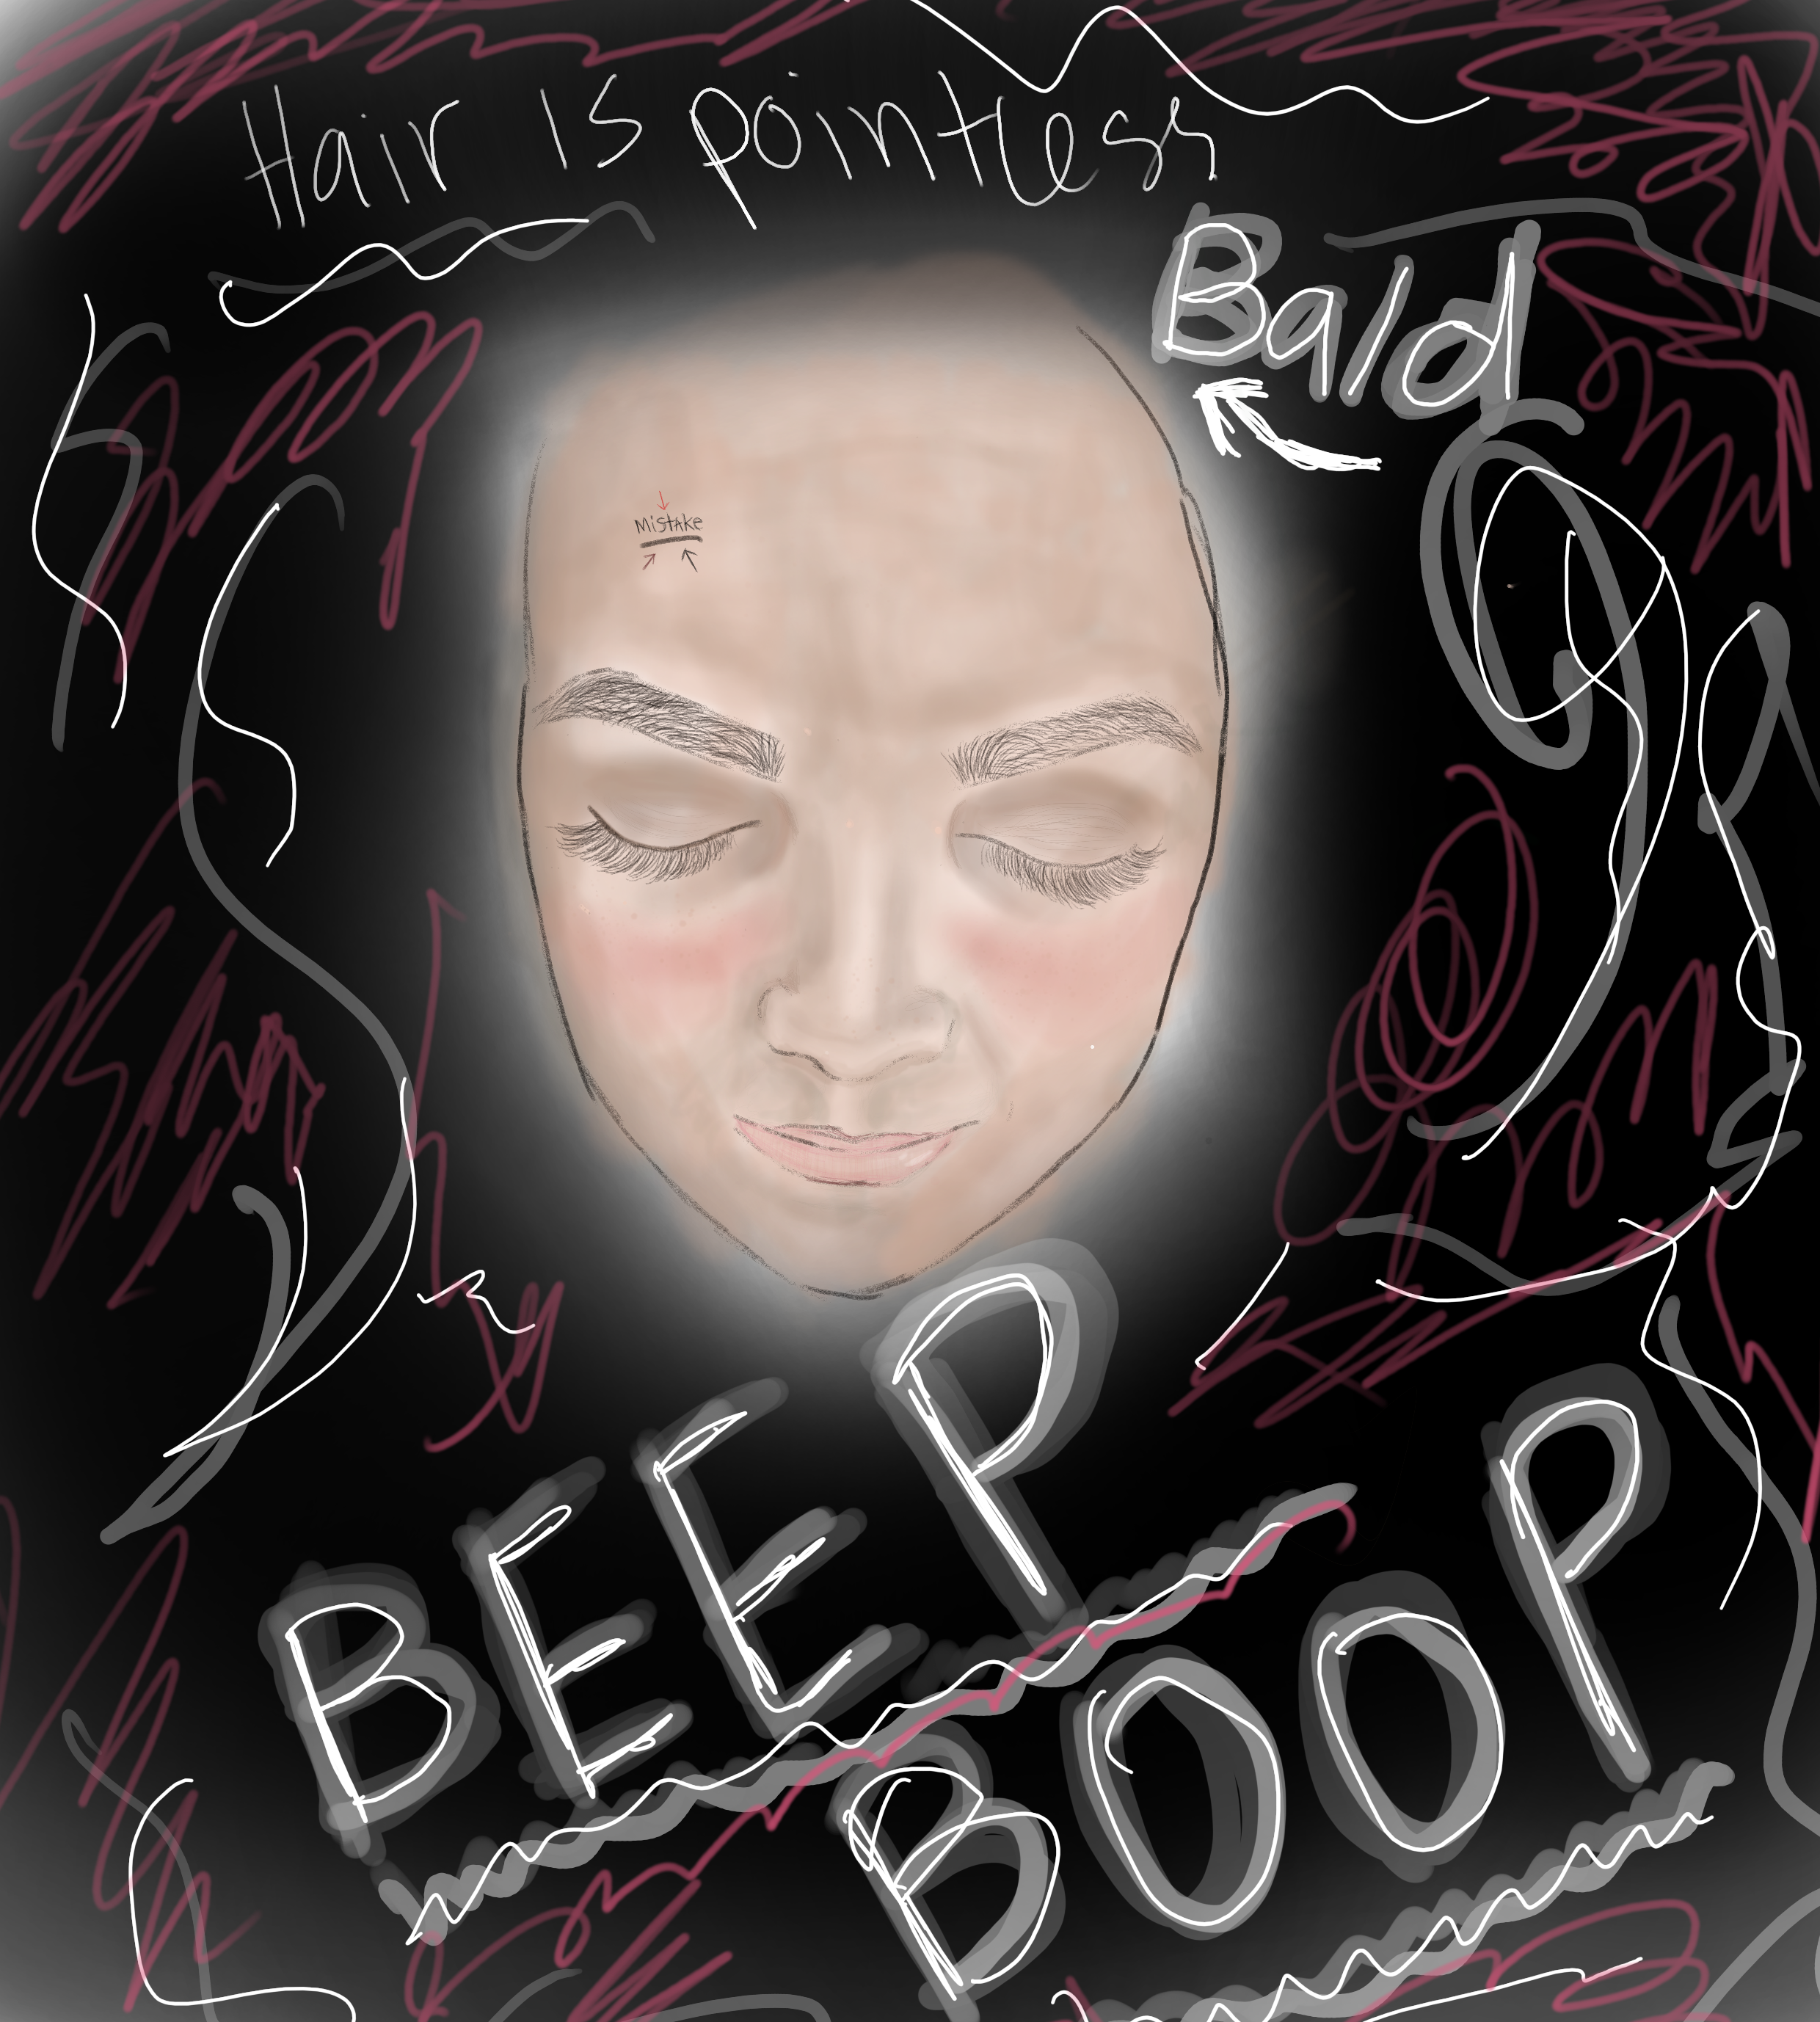 Hair is pointless
Bald
Mistake
BEEP
BOOP